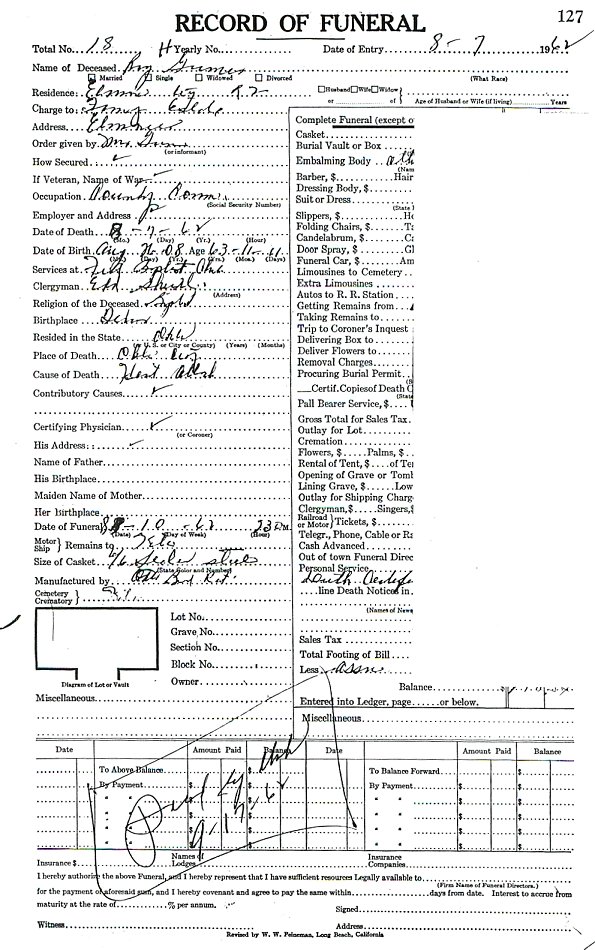 127
RECORD OF FUNERAL
Total No. 18 Yearly No. Date of Entry 8-7 1962
Name of Deceased Roy Grimes
Married Single Widowed Divorced (What Race)
Residence: Husband Wife Widow
or of Age of Husband or Wife (if living) Years
Charge to: Family
Address
Order given by Mrs.
(or informant)
How Secured
If Veteran, Name of War
Occupation County Comm
(Social Security Number)
Employer and Address
Date of Death 8-7-62
(Mo.) (Day) (Yr.) (Hour)
Date of Birth Aug 26.08 Age 53-11-11
(Mo.) (Day) (Yr.) (Yrs.) (Mos.) (Days)
Services at First Baptist
Clergyman
(Address)
Religion of the Deceased Baptist
Birthplace
Resided in the State
(or U. S. or City or County) (Years) (Months)
Place of Death
Cause of Death Heart Attack
Contributory Causes
Certifying Physician
(or Coroner)
His Address:
Name of Father
His Birthplace
Maiden Name of Mother
Her Birthplace
Date of Funeral 8-10-62 PM
(Date) (Day of Week) (Hour)
Motor Ship Remains to
Size of Casket 6/6
(State Color and Number)
Manufactured by
Cemetery
Crematory
Lot No.
Grave No.
Section No.
Block No.
Owner
Diagram of Lot or Vault
Miscellaneous
Complete Funeral (except o
Casket
Burial Vault or Box
Embalming Body
(Nam
Barber, $ Hair
Dressing Body, $
Suit or Dress
(State
Slippers, $ Ho
Folding Chairs, $ Ta
Candelabrum, $ Ca
Door Spray, $ Gl
Funeral Car, $ Am
Limousines to Cemetery
Extra Limousines
Autos to R. R. Station
Getting Remains from
Taking Remains to
Trip to Coroner's Inquest
Delivering Box to
Deliver Flowers to
Removal Charges
Procuring Burial Permit
Certif. Copies of Death C
(State
Pall Bearer Service, $
Gross Total for Sales Tax
Outlay for Lot
Cremation
Flowers, $ Palms, $
Rental of Tent, $ of Te
Opening of Grave or Tomb
Lining Grave, $ Low
Outlay for Shipping Charg
Clergyman, $ Singers, $
Railroad or Motor Tickets, $
Telegr., Phone, Cable or Ra
Cash Advanced
Out of town Funeral Direc
Personal Service
Death
line Death Notices in
(Names of News
Sales Tax
Total Footing of Bill
Less Assn
Balance
Entered into Ledger, page or below.
Miscellaneous
Date Amount Paid Balance Date Amount Paid Balance
To Above Balance $ To Balance Forward $
By Payment $ By Payment $
" " $ " " $
" " $ " " $
" " $ " " $
" " $ " " $
Insurance $ Names of Lodges Insurance Companies
I hereby authorize the above Funeral, and I hereby represent that I have sufficient resources Legally available to
(Firm Name of Funeral Directors.)
for the payment of aforesaid sum, and I hereby covenant and agree to pay the same within days from date. Interest to accrue from
maturity at the rate of % per annum.
Signed
Witness Address
Revised by W. W. Feineman, Long Beach, California